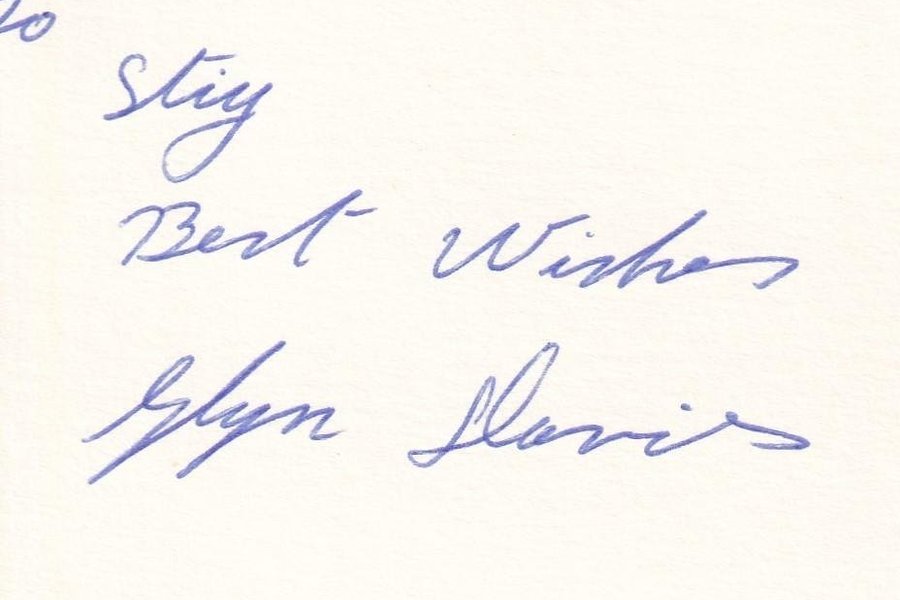 To
Stig
Best Wishes
Glyn Davies